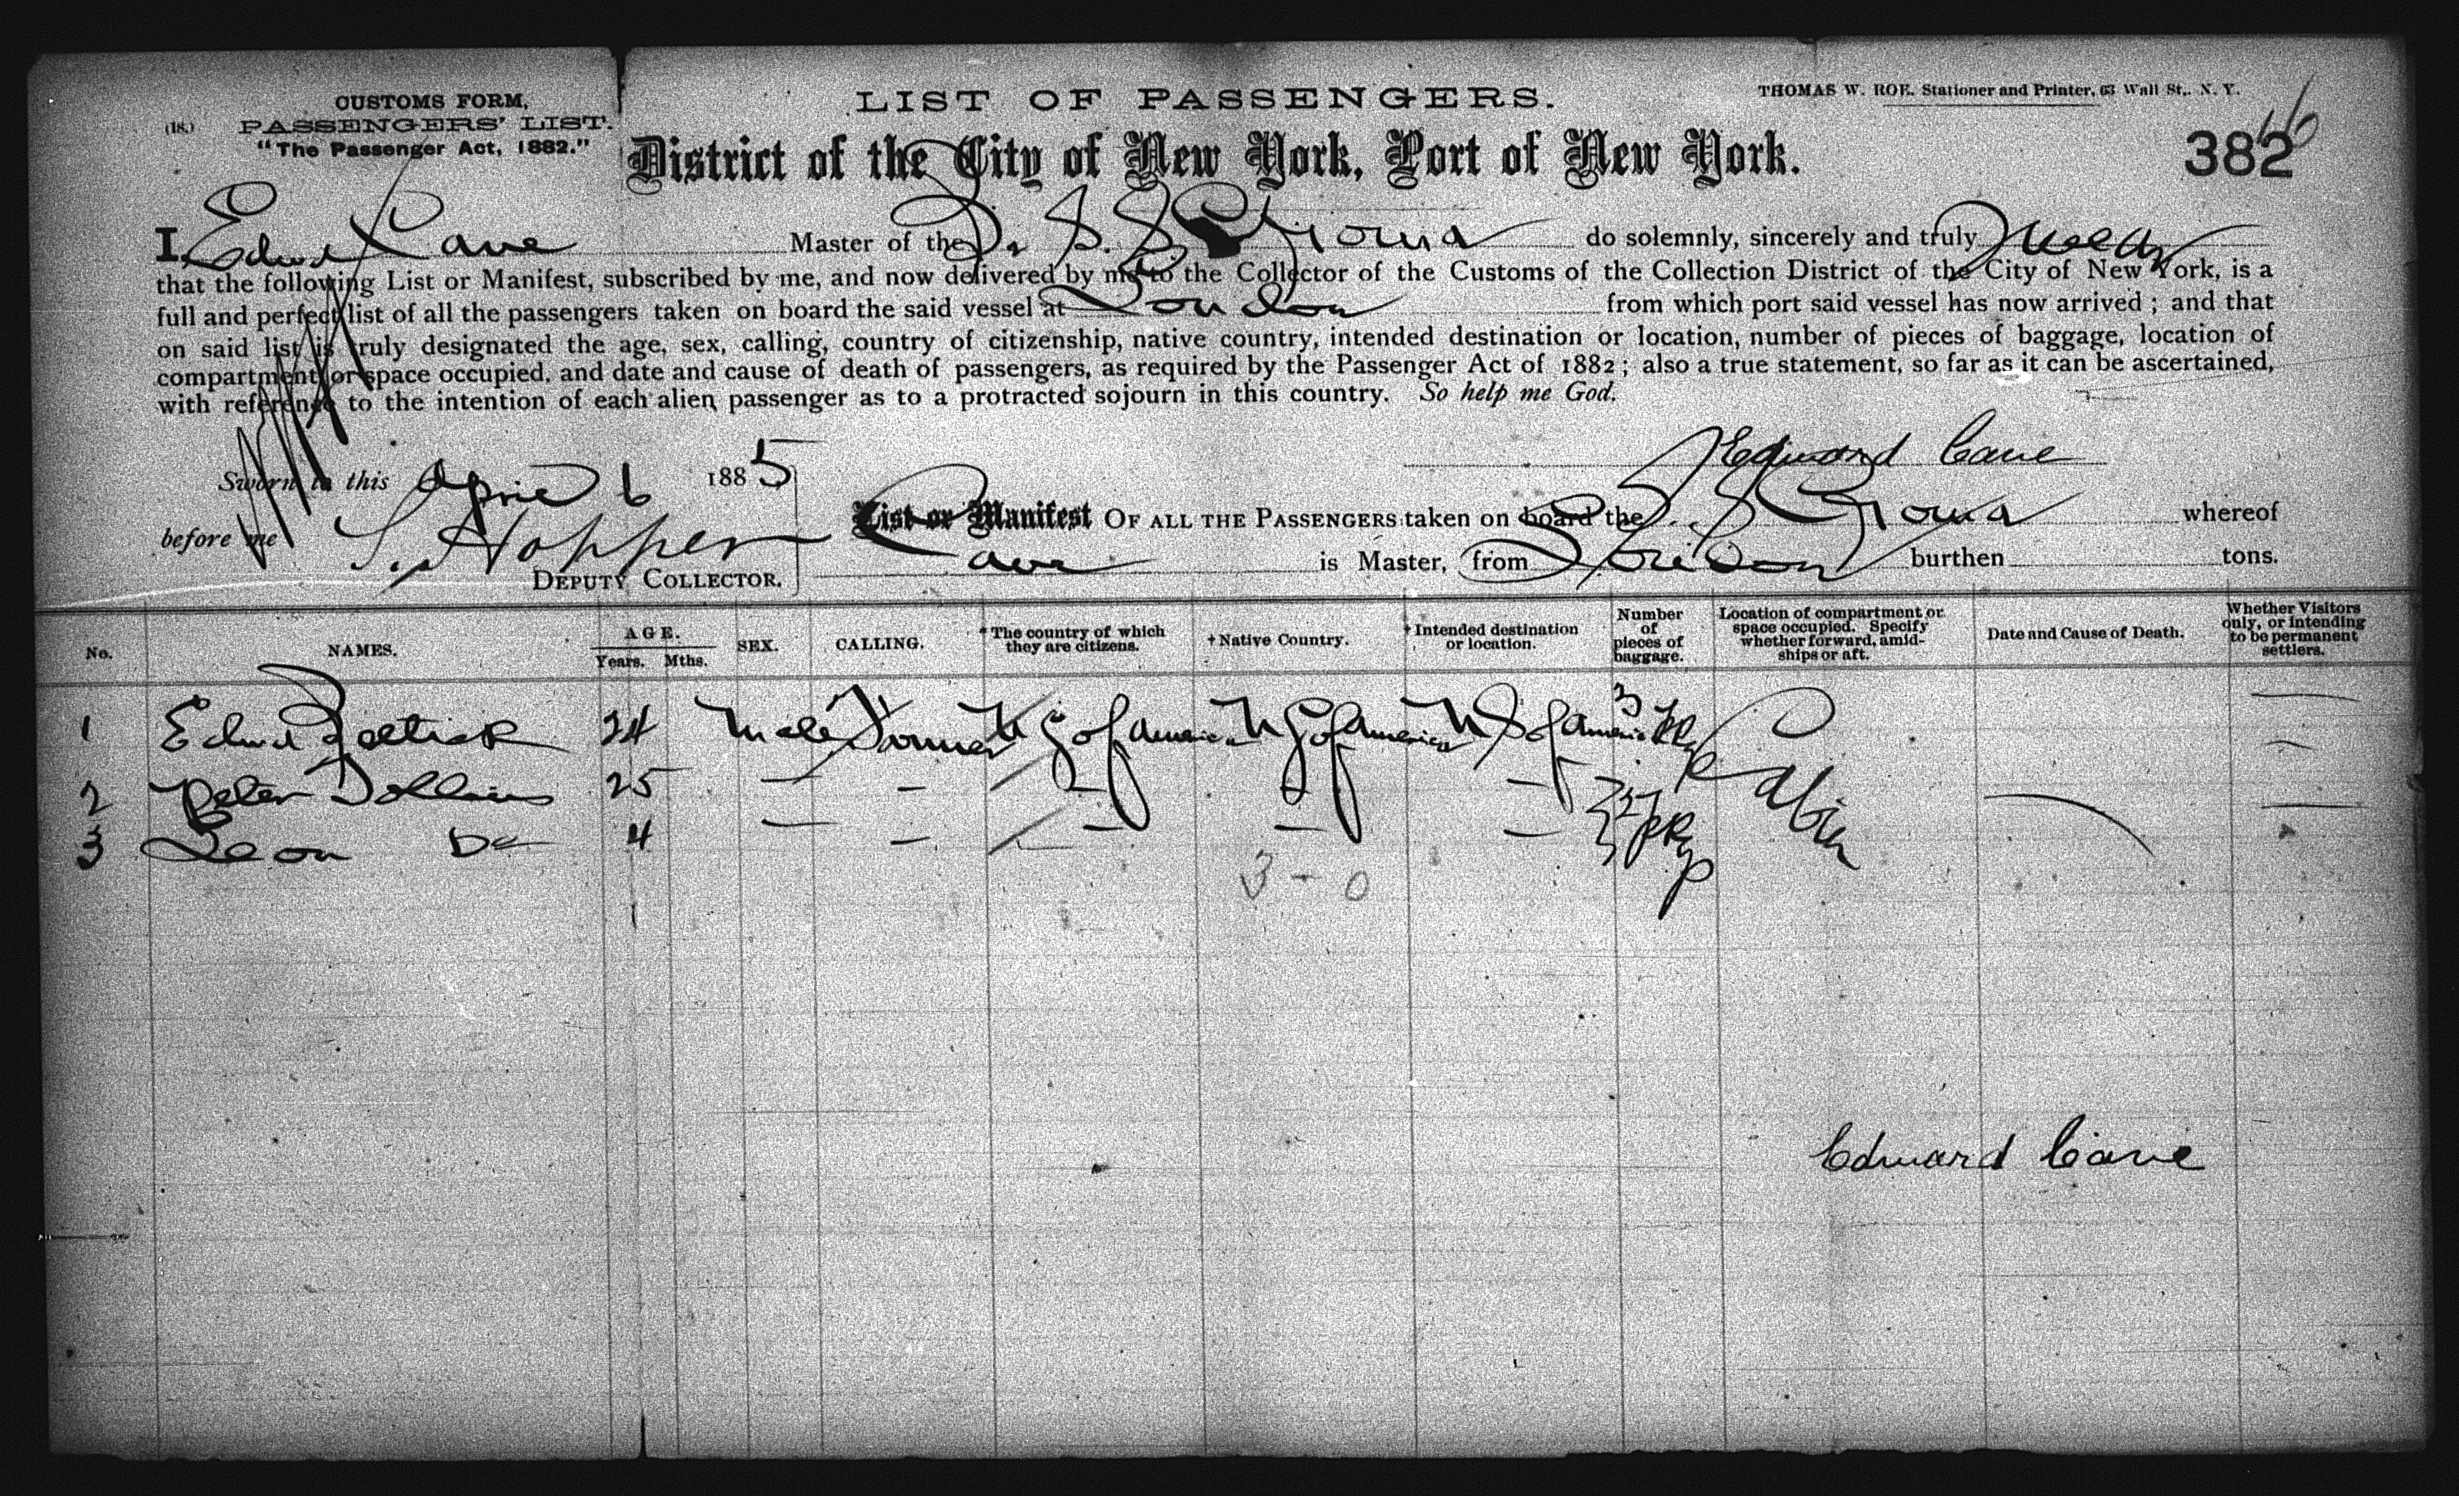 CUSTOMS FORM,
(18.) PASSENGERS' LIST.
"The Passenger Act, 1882."
LIST OF PASSENGERS.
THOMAS W. ROE. Stationer and Printer, 63 Wall St., N. Y.
District of the City of New York, Port of New York.
382
I, Edwd Cave Master of the Br S. S. Iowa do solemnly, sincerely and truly swear
that the following List or Manifest, subscribed by me, and now delivered by me to the Collector of the Customs of the Collection District of the City of New York, is a
full and perfect list of all the passengers taken on board the said vessel at London from which port said vessel has now arrived ; and that
on said list is truly designated the age, sex, calling, country of citizenship, native country, intended destination or location, number of pieces of baggage, location of
compartment or space occupied, and date and cause of death of passengers, as required by the Passenger Act of 1882 ; also a true statement, so far as it can be ascertained,
with reference to the intention of each alien passenger as to a protracted sojourn in this country. So help me God.
Edward Cave
Sworn to this April 6 1885
before me S. Hopper
DEPUTY COLLECTOR.
List or Manifest OF ALL THE PASSENGERS taken on board the S. S. Iowa whereof
Cave is Master, from London burthen tons.
No. NAMES. AGE. Years. Mths. SEX. CALLING. * The country of which they are citizens. † Native Country. † Intended destination or location. Number of pieces of baggage. Location of compartment or space occupied. Specify whether forward, amidships or aft. Date and Cause of Death. Whether Visitors only, or intending to be permanent settlers.
1 Edwd 24 Male Farmer U S of America U S of America U S of America 3 Pkgs Cabin
2 Peter Collins 25 — — — — —
3 Leon Do 4 — — — — — Pkgs
3 - 0
Edward Cave